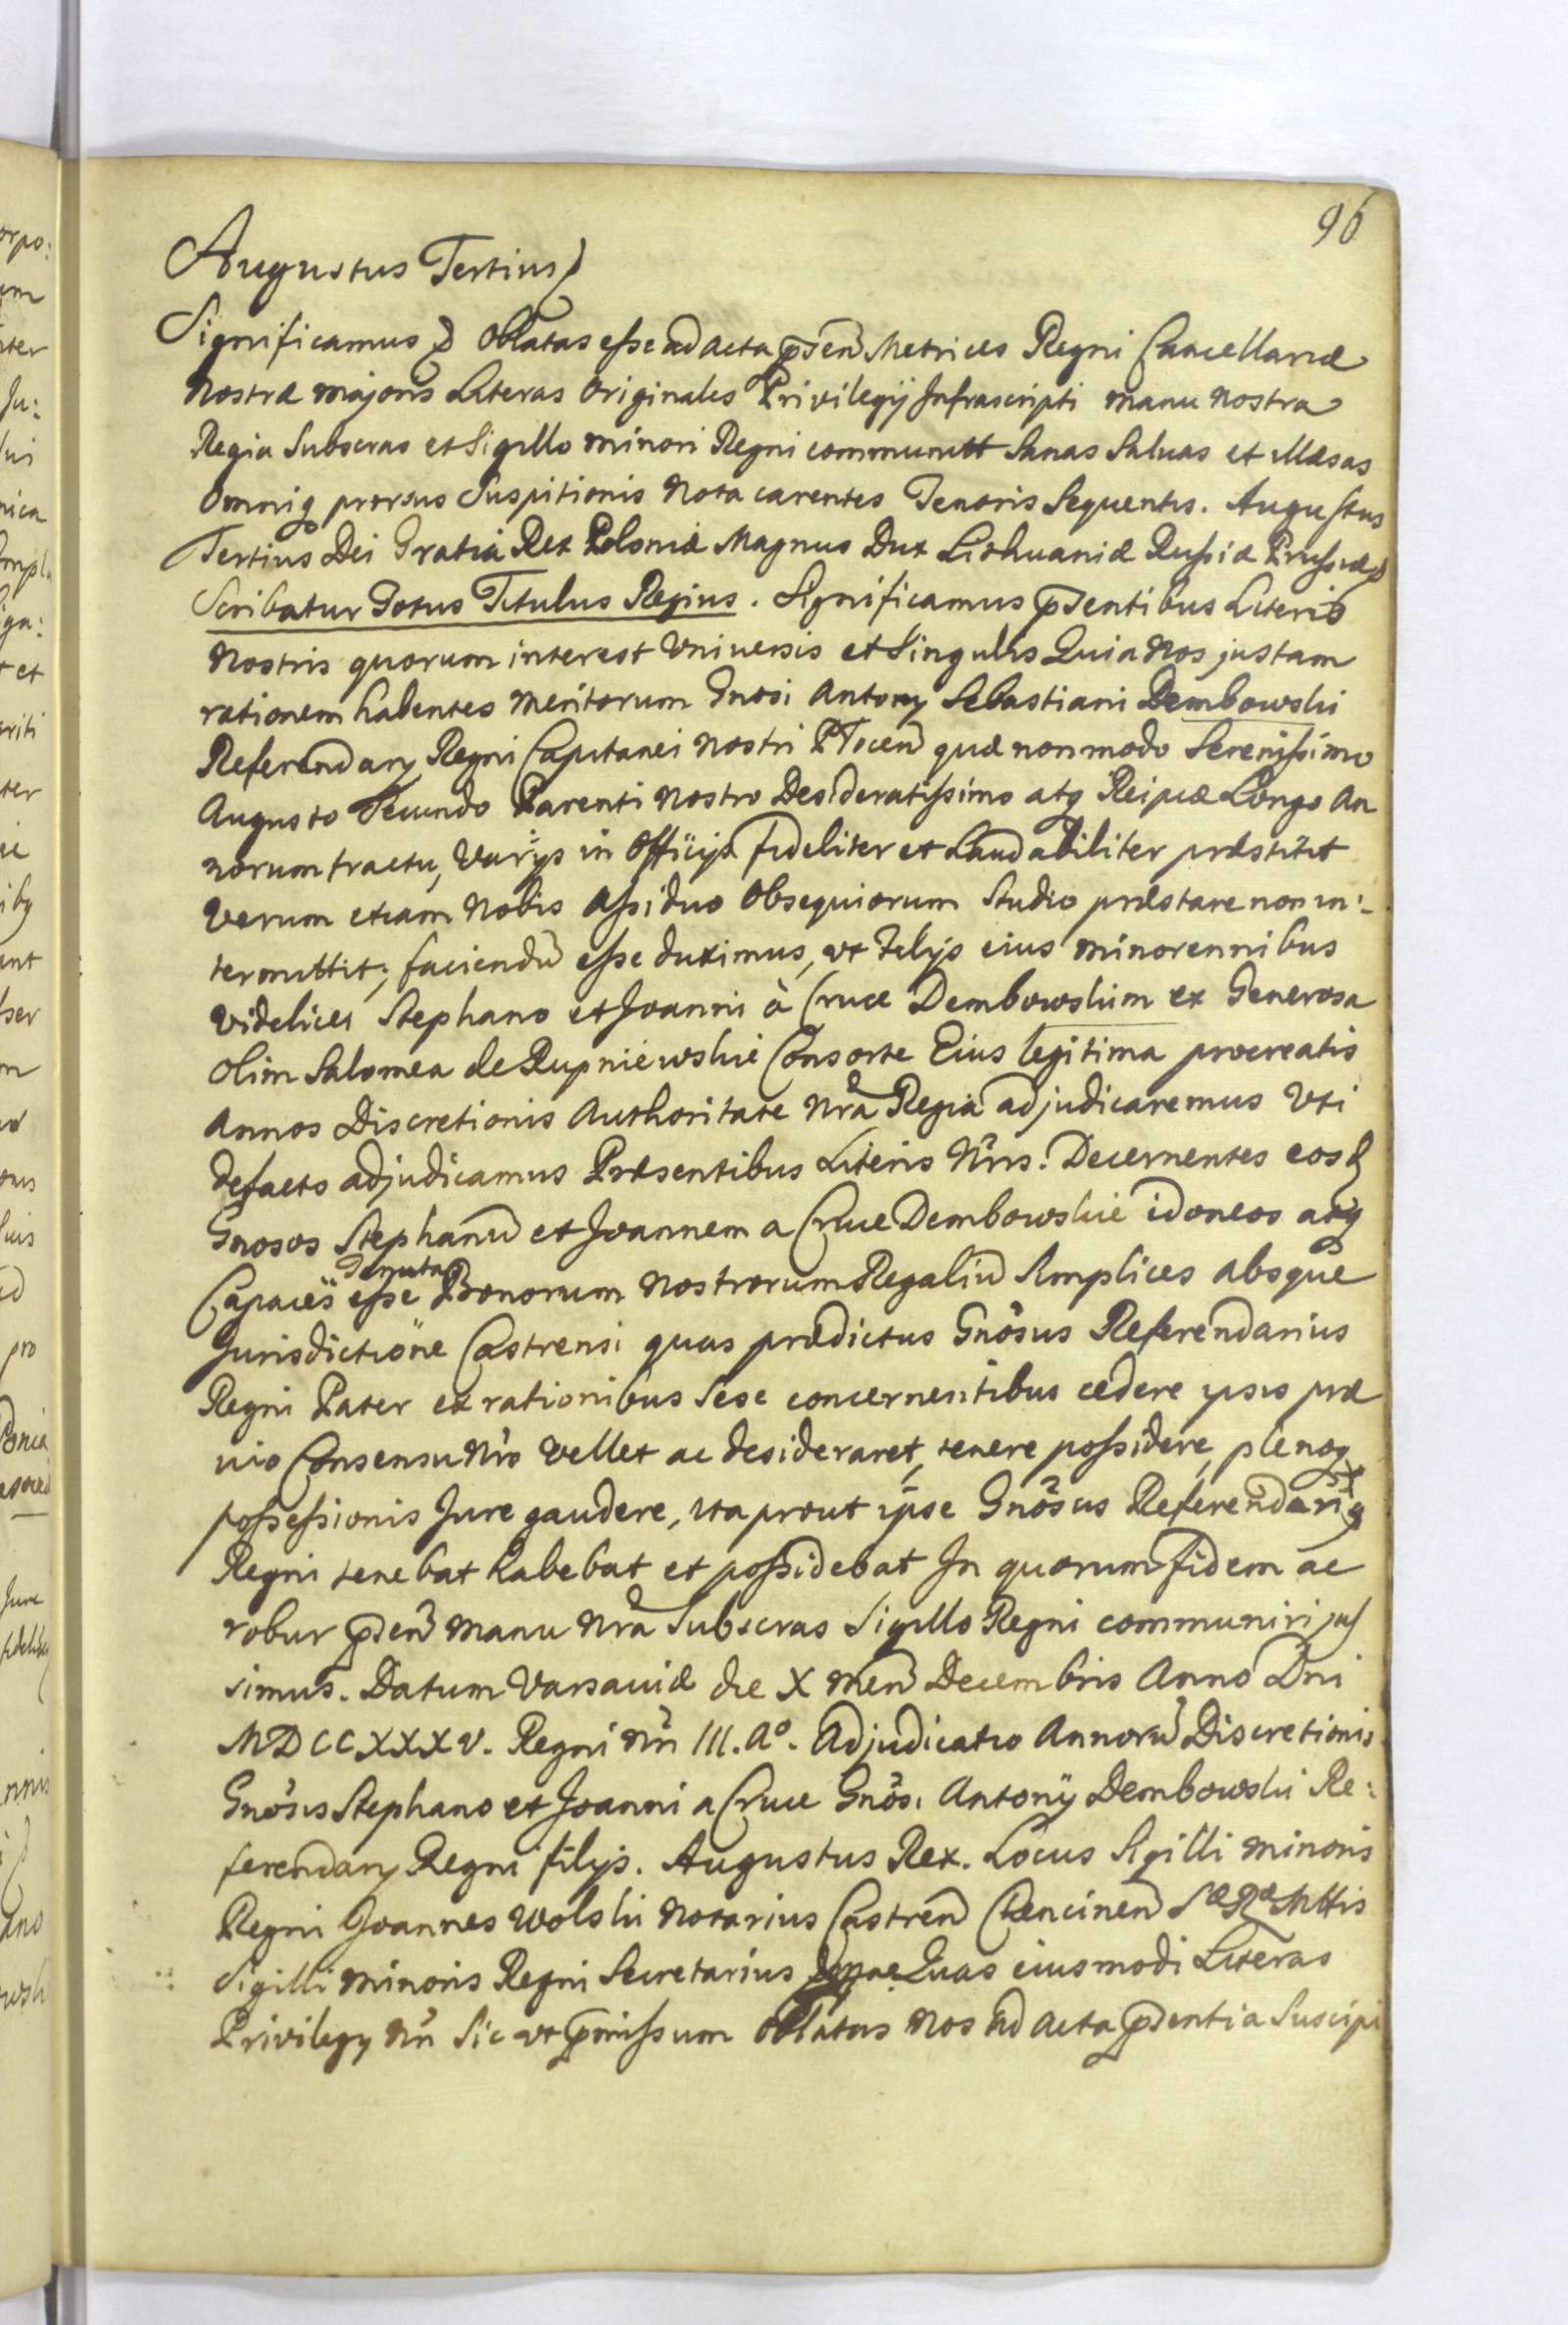 96
Augustus Tertius
Significamus Oblatas esse ad acta p̄sen Metrices Regni Cancellariæ
Nostræ majoris Literas Originales Privilegÿ Infrascripti manu Nostra
Regia Subscras et Sigillo minori Regni communitt Sanas Saluas et illæsas
Omniq prorsus Suspitionis Nota carentes Tenoris Sequentis. Augustus
Tertius Dei Gratia Rex Poloniæ Magnus Dux Lithuaniæ Russiæ Prussiæ
Scribatur Totus Titulus Regius. Significamus p̄sentibus Literis
Nostris quorum interest Vniuersis et Singulis Quia Nos justam
rationem habentes meritorum Gnosi Antony Sebastiani Dembowski
Referendary Regni Capitanei Nostri Plocen quæ non modo Serenissimo
Augusto Secundo Parenti Nostro Desideratissimo atq Reipcæ Longo An
norum tractu, Varÿs in Officÿs fideliter et Laudabiliter præstitit
Verum etiam Nobis Assiduo Obsequiorum Studio præstare non in:
termittit; faciendū esse duximus, vt Filÿs eius minorennibus
Videlicet Stephano et Joanni à Cruce Dembowskim ex Generosa
Olim Salomea de Rupniewskie Consorte Eius legitima procreatis
Annos Discretionis Authoritate Nrã Regia adjudicaremus Vti
defacto adjudicamus Præsentibus Literis Nris. Decernentes eosd
Gnosos Stephanū et Joannem a Cruce Dembowskie idoneos atq
Capaces esse Bonorum Nostrorum Regaliū Simplices absque
Jurisdictione Castrensi quas prædictus Gnosus Referendarius
Regni Pater ex rationibus Sese concernentibus cedere ipsis præ
uio Consensu Nro Vellet ac desideraret, tenere possidere, plenoq
possessionis Jure gaudere, ita prout ipse Gnosus Referendariq
Regni tenebat habebat et possidebat In quorum fidem ac
robur p̄sen manu Nrã Subscras Sigillo Regni communiri jus
simus. Datum Varsauiæ die X men Decembris Anno Dni
MDCCXXXV. Regni Nri III. Aº. Adjudicatio Annorū Discretionis
Gnosis Stephano et Joanni a Cruce Gnosi Antonÿ Dembowski Re:
ferendary Regni filÿs. Augustus Rex. Locus Sigilli minoris
Regni Joannes Wolski Notarius Castren Chencinen Sæ Ræ Mttis
Sigilli minoris Regni Secretarius Quas eiusmodi Literas
Privilegy Nri Sic vt p̄missum oblatas Nos ad acta p̄sentia Suscipi